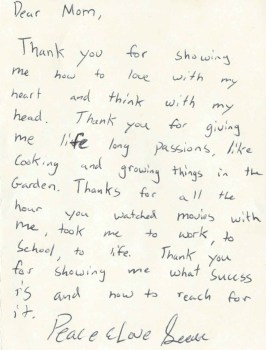 Dear Mom,
Thank you for showing
me how to love with my
heart and think with my
head. Thank you for giving
me life long passions, like
Cooking and growing things in the
Garden. Thanks for all the
hour you watched movies with
me, took me to work, to
School, to life. Thank you
for showing me what Sucess
is and how to reach for
it.
Peace & Love